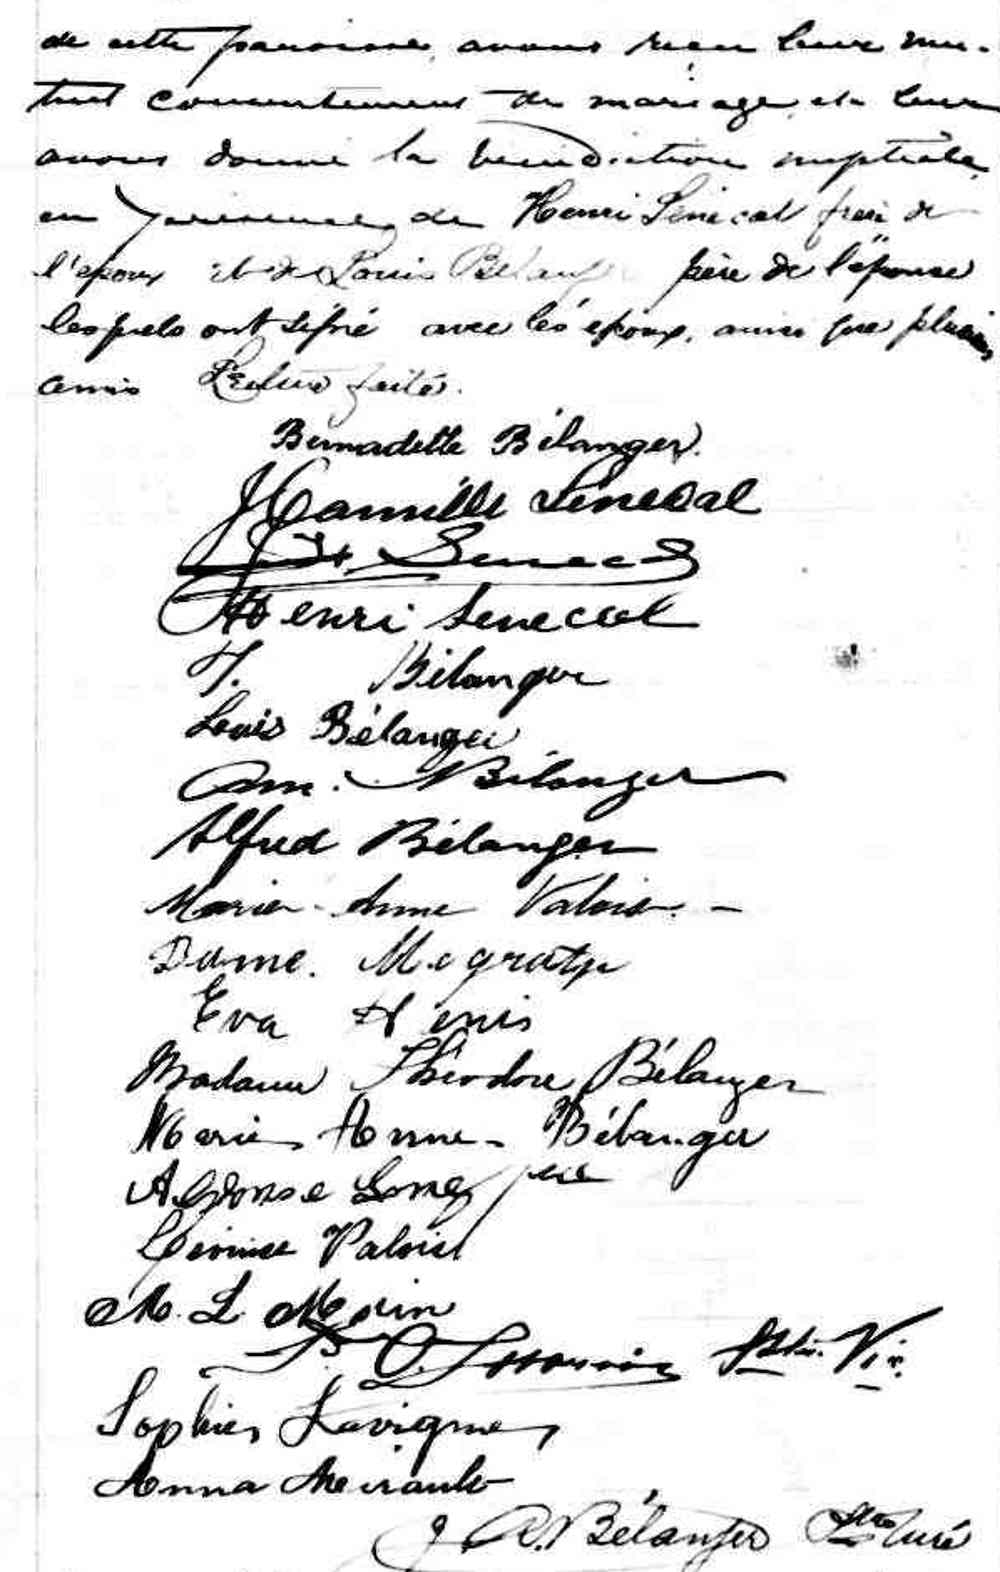 de cette paroisse, avons reçu leur mu-
tuel consentement de mariage et leur
avons donné la bénédiction nuptiale
en présence de Henri Sénécal frère de
l'époux et de Louis Bélanger père de l'épouse
lesquels ont signé avec les époux, ainsi que plusieurs
amis Lecture faite.
Bernadette Bélanger.
J Camille Senecal
Senecal
Henri Senecal
J. Bélanger
Louis Bélanger
Am. Bélanger
Alfred Bélanger
Marie-Anne Valois -
Dame. Megrath
Eva Henis
Madame Théodore Bélanger
Marie Anne Bélanger
Alphonse
Valois
M. L. Morin
Ptre. Vic.
Sophie Lavigne
Anna Merault
J. A. Bélanger Ptre Curé